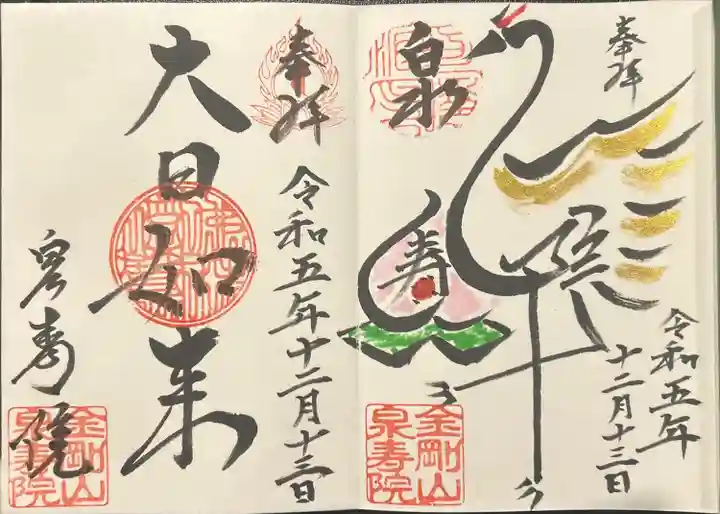 奉拝
令和五年
十二月十三日
泉
寿
院
金剛山
泉寿院
奉拝
令和五年十二月十三日
大日如来
泉寿院
金剛山
泉寿院